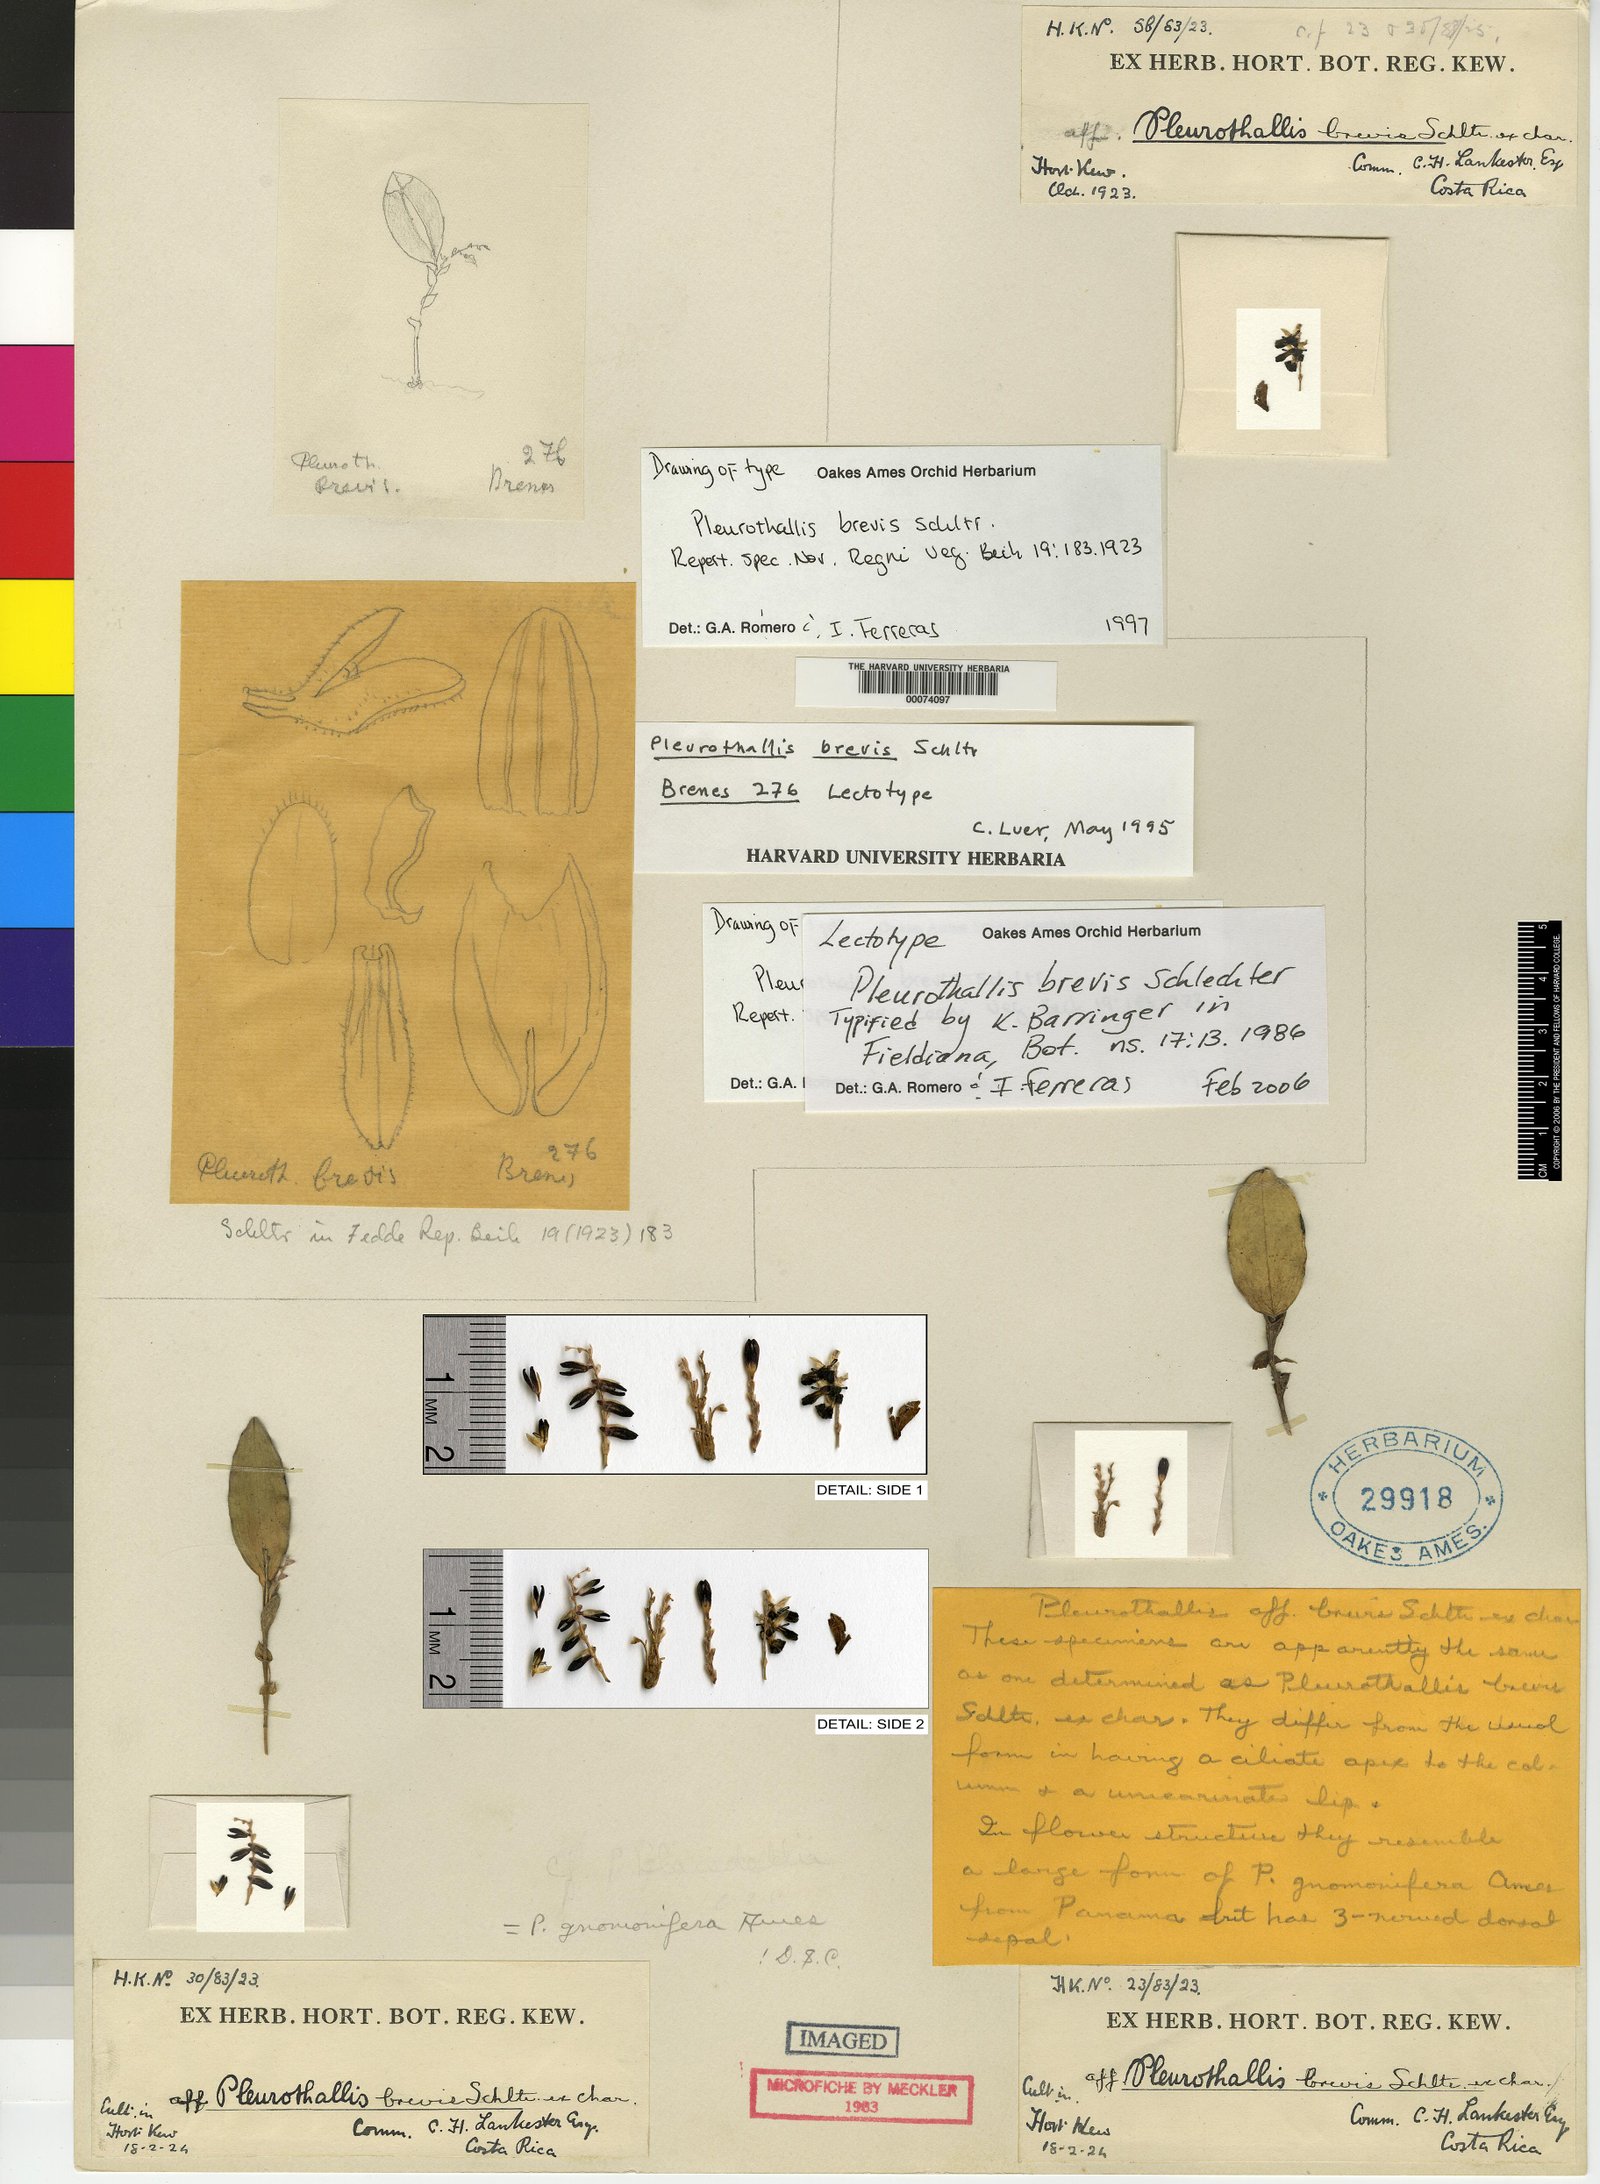 H.K.Nº. 58/63/23.
EX HERB. HORT. BOT. REG. KEW.
aff. Pleurothallis brevis Schltr. ex char.
Hort. Kew.
Oct. 1923.
Comm. C.H. Lankester, Esq
Costa Rica
Pleuroth.
brevis.
276
Brenes
Drawing of type
Oakes Ames Orchid Herbarium
Pleurothallis brevis Schltr.
Repert. Spec. Nov. Regni Veg. Beih 19:183.1923
Det.: G.A. Romero & I. Ferreras 1997
THE HARVARD UNIVERSITY HERBARIA
00074097
Pleurothallis brevis Schltr
Brenes 276 Lectotype
C. Luer, May 1995
HARVARD UNIVERSITY HERBARIA
Drawing of
Pleur
Repert.
Det.: G.A.
Lectotype
Oakes Ames Orchid Herbarium
Pleurothallis brevis Schlechter
Typified by K. Barringer in
Fieldiana, Bot. ns. 17:13. 1986
Det.: G.A. Romero & I Ferreras Feb 2006
Pleuroth. brevis
276
Brenes
Schltr in Fedde Rep. Beih 19 (1923) 183
CM 1 2 3 4 5
COPYRIGHT © 2006 BY THE PRESIDENT AND FELLOWS OF HARVARD COLLEGE.
1
MM
2
DETAIL: SIDE 1
1
MM
2
DETAIL: SIDE 2
HERBARIUM
29918
OAKES AMES.
Pleurothallis aff. brevis Schltr. ex char
These specimens are apparently the same
as one determined as Pleurothallis brevis
Schltr. ex char. They differ from the usual
form in having a ciliate apex to the col-
umn & a unicarinate lip.
In flower structure they resemble
a large form of P. gnomonifera Ames
from Panama but has 3-nerved dorsal
sepal.
= P. gnomonifera Ames
! D.S.C.
H.K.Nº 30/83/23.
EX HERB. HORT. BOT. REG. KEW.
aff Pleurothallis brevis Schltr. ex char.
Cult. in
Hort. Kew
18-2-24
Comm. C.H. Lankester Esq.
Costa Rica
IMAGED
MICROFICHE BY MECKLER
1983
H.K.Nº. 23/83/23.
EX HERB. HORT. BOT. REG. KEW.
aff Pleurothallis brevis Schltr. ex char.
Cult. in
Hort Kew
18-2-24
Comm. C.H. Lankester Esq
Costa Rica